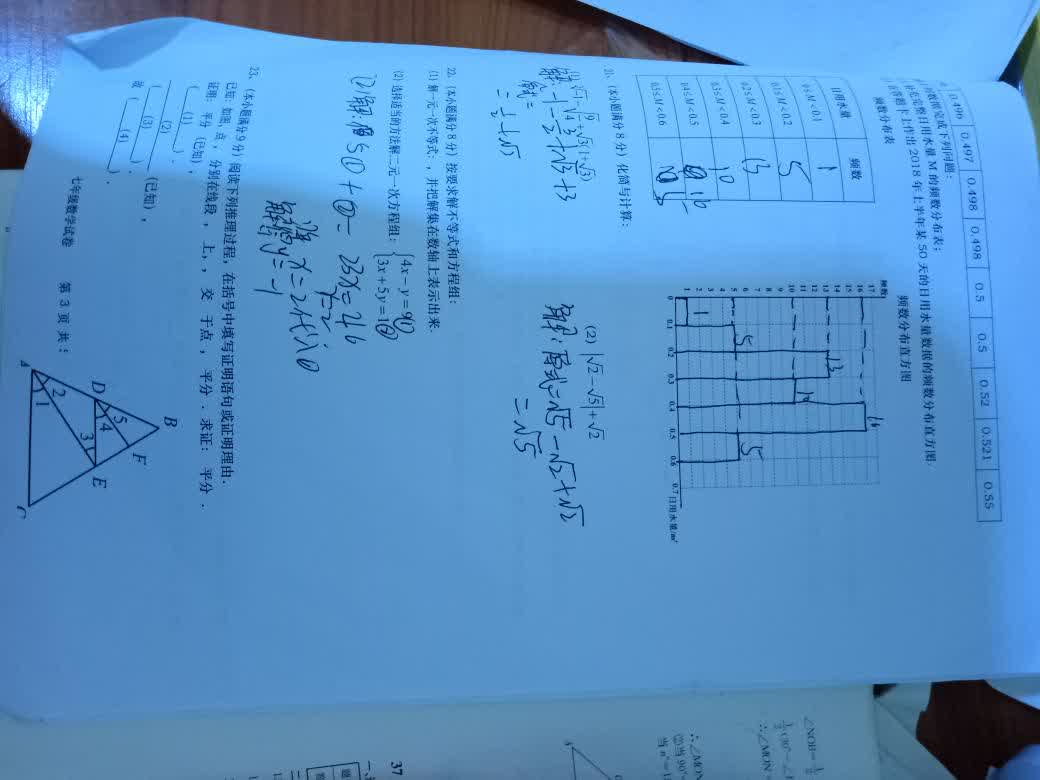 0.496 0.497 0.498 0.498 0.5 0.5 0.52 0.521 0.55
完成下列问题:
完整日用水量 M 的频数分布表;
答题卡上作出2018年上半年某50天的日用水量数据的频数分布直方图.
频数分布表
日用水量 频数
0≤M<0.1 1
0.1≤M<0.2 5
0.2≤M<0.3 13
0.3≤M<0.4 10
0.4≤M<0.5 16
0.5≤M<0.6 5
频数分布直方图
频数
17
16
15
14
13
12
11
10
9
8
7
6
5
4
3
2
1
0 0.1 0.2 0.3 0.4 0.5 0.6 0.7 日用水量/m³
1 5 13 10 16 5
21. (本小题满分8分) 化简与计算:
(2) |√2-√5|+√2
解:原式=√5-√2+√2
=√5
22. (本小题满分8分) 按要求解不等式和方程组:
(1) 解一元一次不等式: , 并把解集在数轴上表示出来.
(2) 选择适当的方法解二元一次方程组: {4x-y=9① 3x+5y=1②
(2)解:由5①+②=23x=46
x=2
将x=2代入①
解得y=-1
23. (本小题满分9分) 阅读下列推理过程, 在括号中填写证明语句或证明理由.
已知: 如图, 点, 分别在线段, 上, , 交 于点, 平分. 求证: 平分.
证明: 平分(已知),
(__(1)__).
(__(2)__)
(__(3)__) (已知),
故 (__(4)__).
A B C D E F 1 2 3 4 5
七年级数学试卷 第3页 共
37
∠NOB=
∴∠MON
②当90°